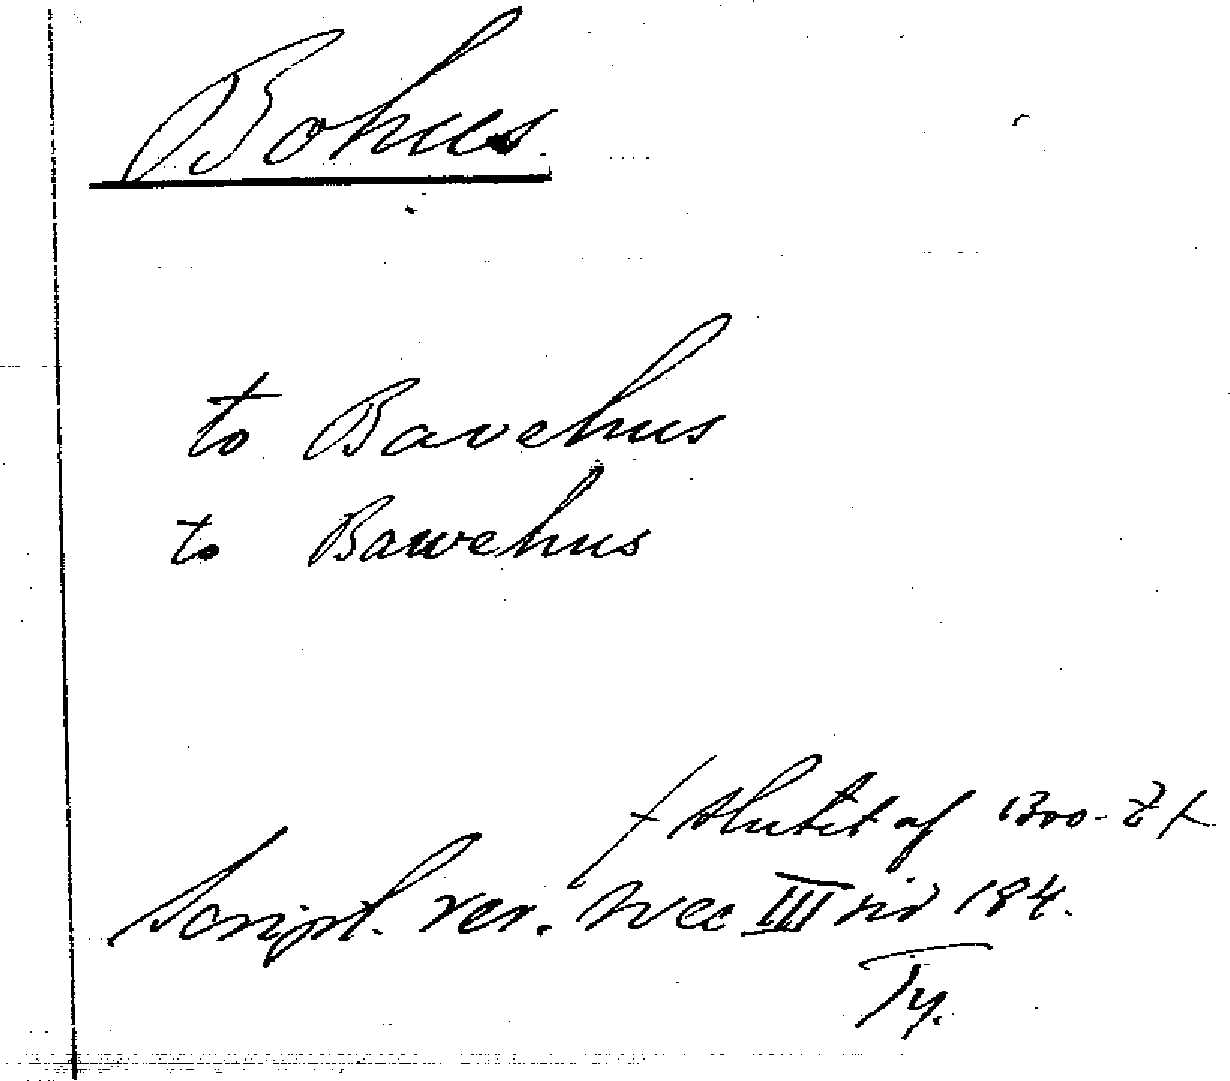 Bohus.
to Bavehus
to Bawehus
f slutet af 1300-t.
Script. rer. svec III sid 184.
Ty.